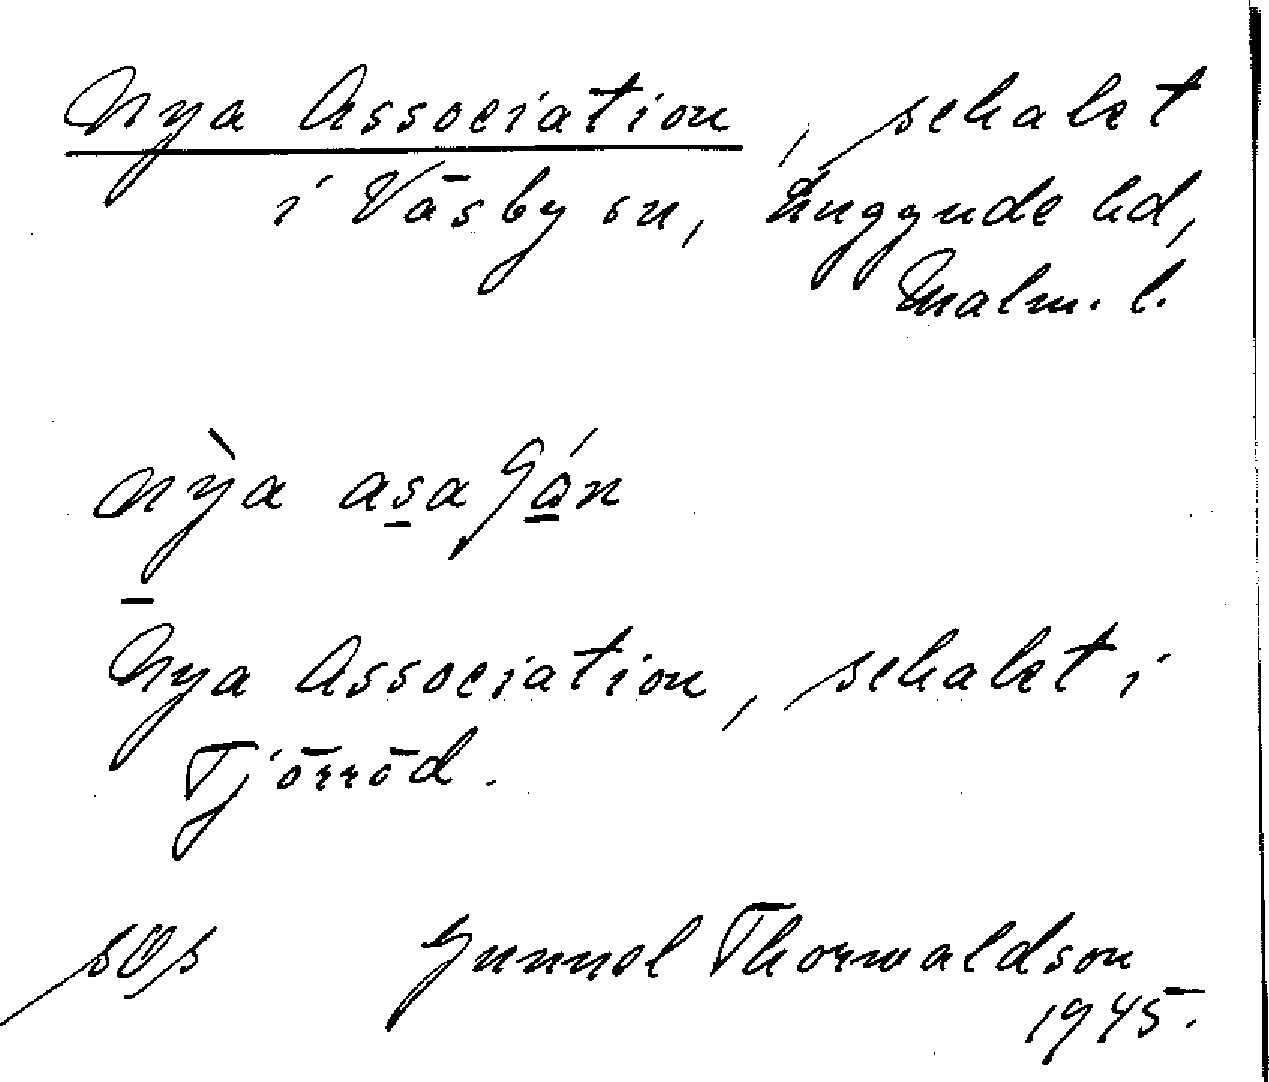 Nya Association, schakt
i Väsby sn, Luggude hd,
Malm. l.
nỳa asaʃán
Nya Association, schaket i
Tjörröd.
Gunnel Thorwaldson
1945.